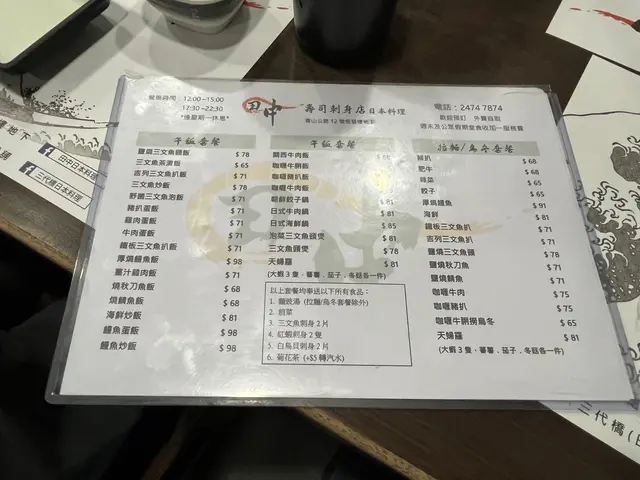 營業時間: 12:00~15:00
17:30~22:30
*逢星期一休息*
田中
壽司刺身店日本料理
青山公路 12 號
電話: 2474 7874
歡迎預訂 外賣自取
週末及公眾假期堂食收加一服務費
午飯套餐
鹽燒三文魚頭飯 $ 78
三文魚茶漬飯 $ 65
吉列三文魚扒飯 $ 71
三文魚炒飯 $ 78
野菌三文魚泡飯 $ 71
豬扒蛋飯 $ 71
雞肉蛋飯 $ 71
牛肉蛋飯 $ 71
鐵板三文魚扒飯 $ 71
厚燒鰻魚飯 $ 98
薑汁雞肉飯 $ 71
燒秋刀魚飯 $ 68
燒鯖魚飯 $ 68
海鮮炒飯 $ 81
鰻魚蛋飯 $ 98
鰻魚炒飯 $ 98
午飯套餐
關西牛肉飯 $ 68
咖喱牛腩飯
咖喱豬扒飯
咖喱牛肉飯
朝鮮餃子鍋
日式牛肉鍋 $ 81
日式海鮮鍋 $ 85
泡菜三文魚頭煲 $ 81
三文魚頭煲 $ 78
天婦羅 $ 81
(大蝦 3 隻，蕃薯．茄子．冬菇各一件)
以上套餐均奉送以下所有食品：
1. 麵豉湯 (拉麵/烏冬套餐除外)
2. 前菜
3. 三文魚刺身 2 片
4. 紅蝦刺身 2 隻
5. 白烏貝刺身 2 片
6. 菊花茶 (+$5 轉汽水)
拉麵/烏冬套餐
豬扒 $ 68
肥牛 $ 68
雜菜 $ 65
餃子 $ 65
厚燒鰻魚 $ 91
海鮮 $ 81
鐵板三文魚扒 $ 71
吉列三文魚扒 $ 71
鹽燒三文魚頭 $ 78
鹽燒秋刀魚 $ 71
鹽燒鯖魚 $ 71
咖喱牛肉 $ 75
咖喱豬扒 $ 75
咖喱牛腩撈烏冬 $ 65
天婦羅 $ 81
(大蝦 3 隻，蕃薯．茄子．冬菇各一件)
樓地下
田中日本料理
三代橋日本料理
三代橋(